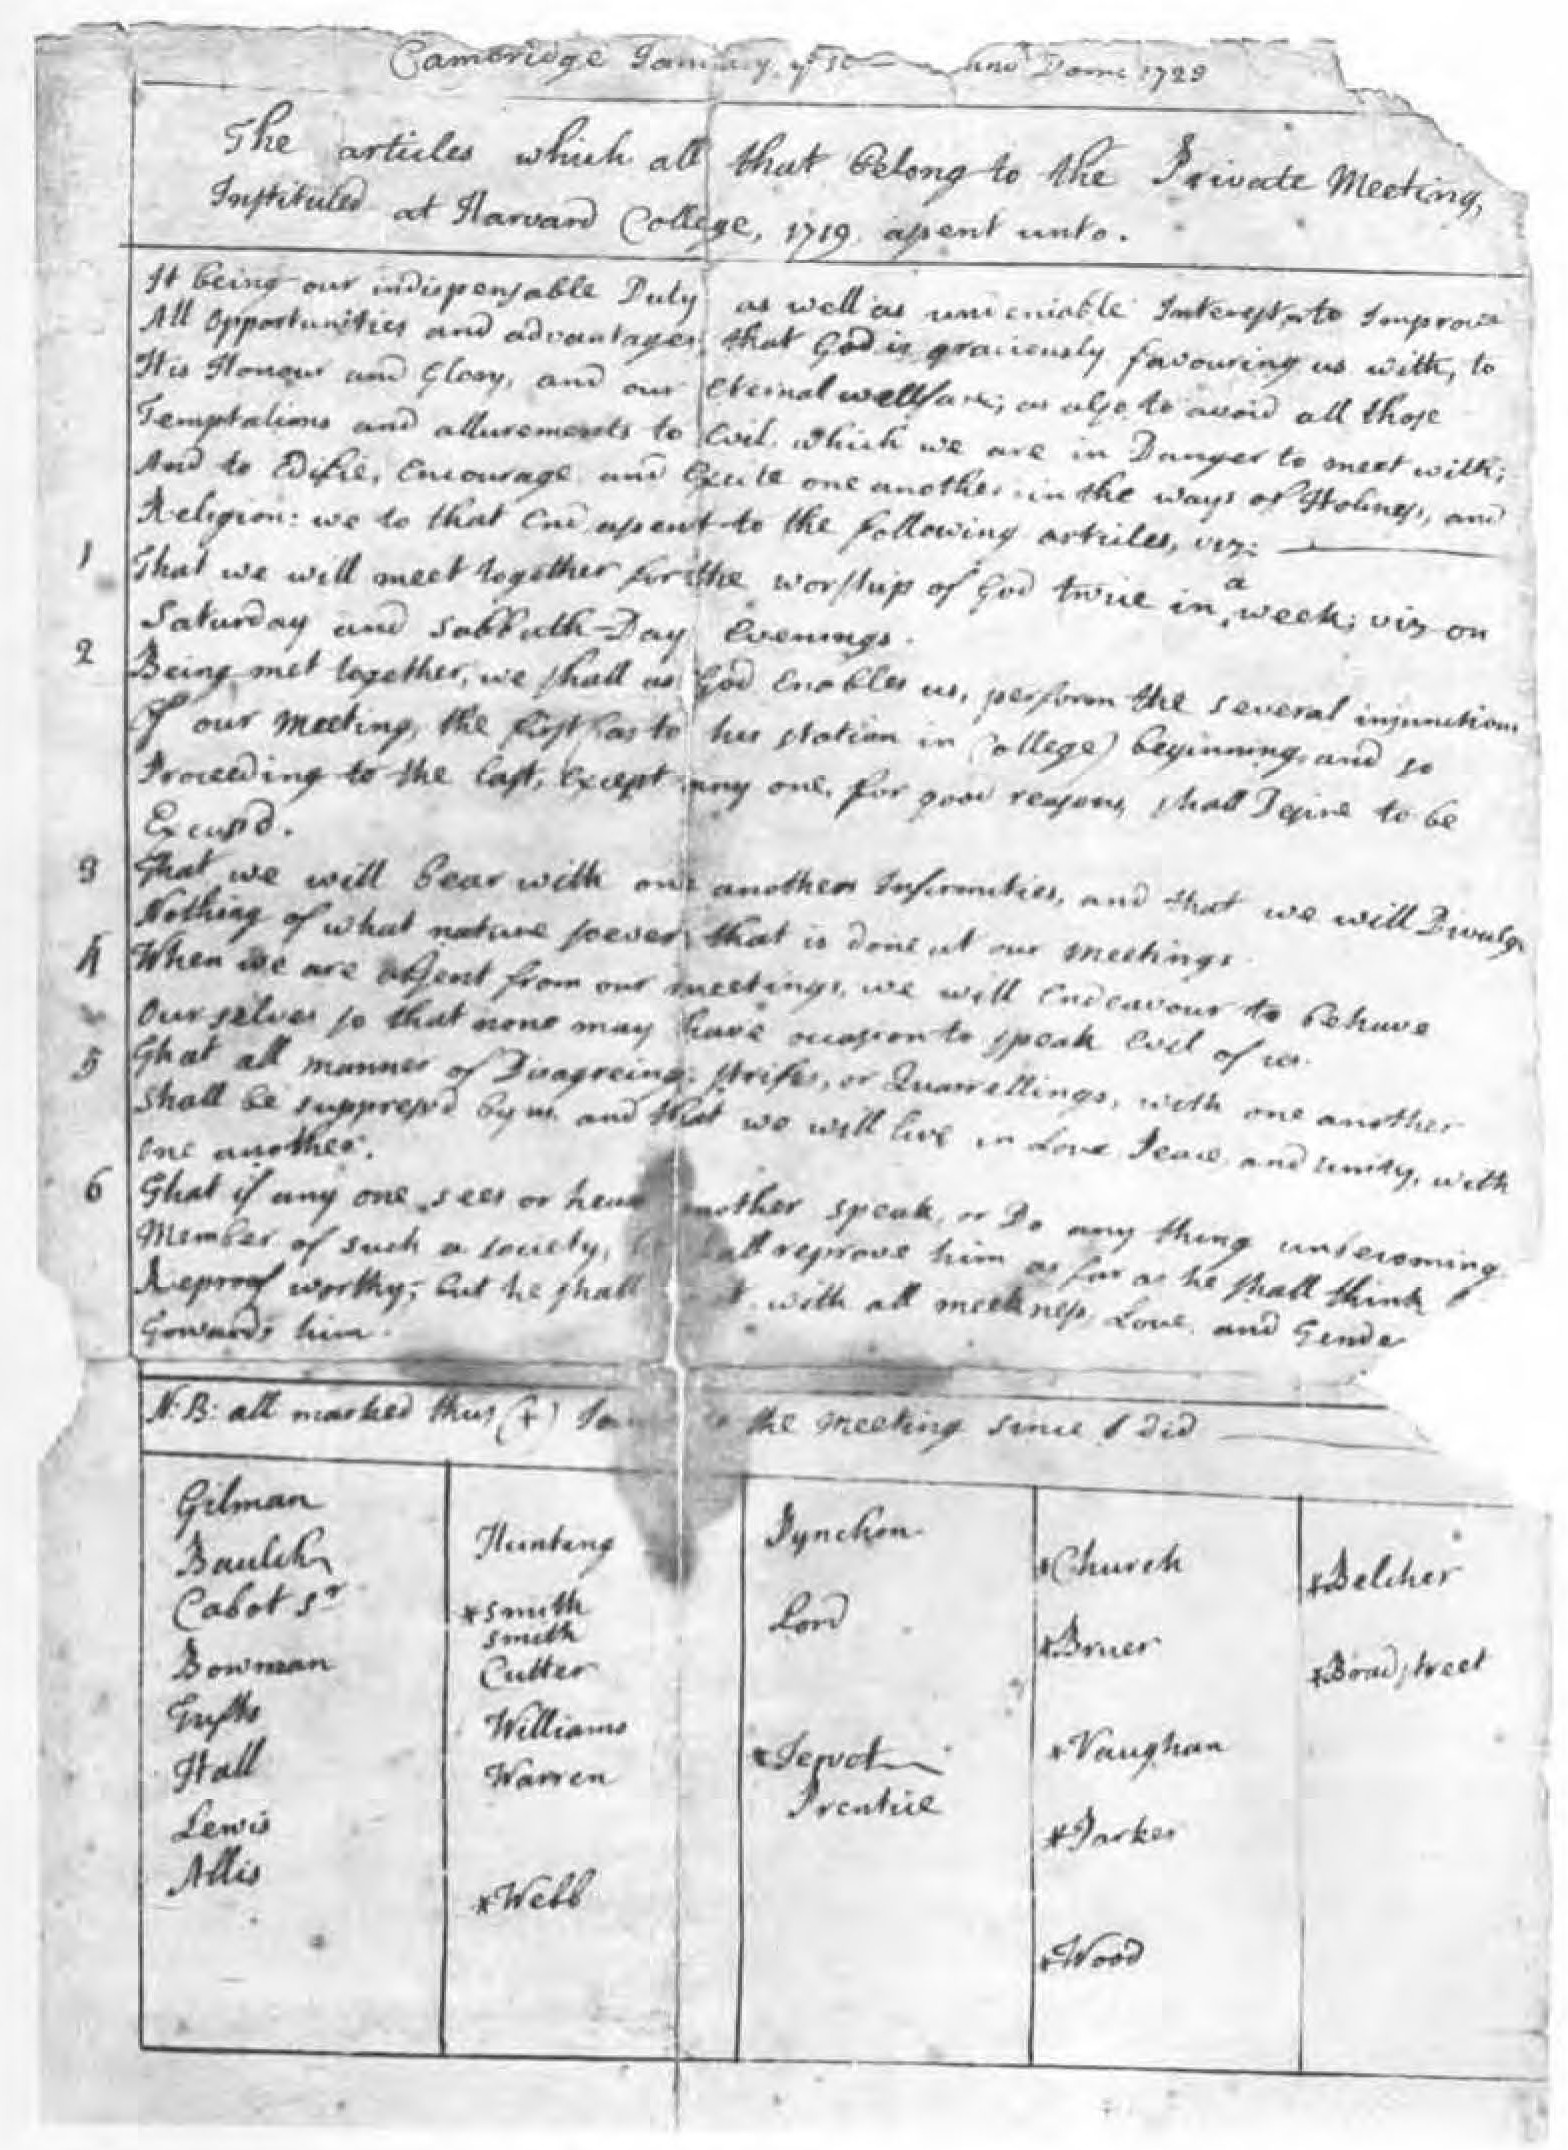 Cambridge January ye Anno Domi 1728
The articles which all that belong to the Private Meeting,
Instituted at Harvard College, 1719, assent unto.
It being our indispensable Duty as well as undeniable Interest, to Improve
All opportunities and advantages, that God is graciously favouring us with, to
His Honour and Glory, and our eternal wellfare; as also to avoid all those
Temptations and allurements to Evil which we are in Danger to meet with;
And to Edifie, Encourage and Excite one another in the ways of Holiness, and
Religion: we to that End assent to the following articles, viz:
1 That we will meet together for the worship of God twice in a week; viz on
Saturday and Sabbath-Day Evenings.
2 Being met together, we shall as God Enables us, perform the several injunctions
Of our Meeting, the first (as to his station in College) beginning and so
Proceeding to the last, Except any one, for good reasons, shall Desire to be
Excus'd.
3 That we will bear with one anothers Infirmities, and that we will Divulge
Nothing of what nature soever that is done at our meetings.
4 When we are absent from our meetings, we will Endeavour to behave
Ourselves so that none may have occasion to speak Evil of us.
5 That all manner of Disagreeing, strifes, or Quarrellings, with one another
Shall be suppress'd by us and that we will live in Love Peace and Unity, with
One another.
6 That if any one sees or hears another speak, or Do any thing unbecoming
Member of such a society, shall reprove him as far as he shall think
Reproof worthy; but he shall it with all meekness, Love, and Tende
Towards him.
N: B: all marked thus (+) the meeting since I did
Gilman Hunting Pynchon *Church *Belcher
Baulch *Smith Lord *Bruer *Bradstreet
Cabot Sr Smith *Vaughan
Bowman Cutter Prentice *Parker
Tufts Williams *Wood
Hall Warren
Lewis *Webb
Allis